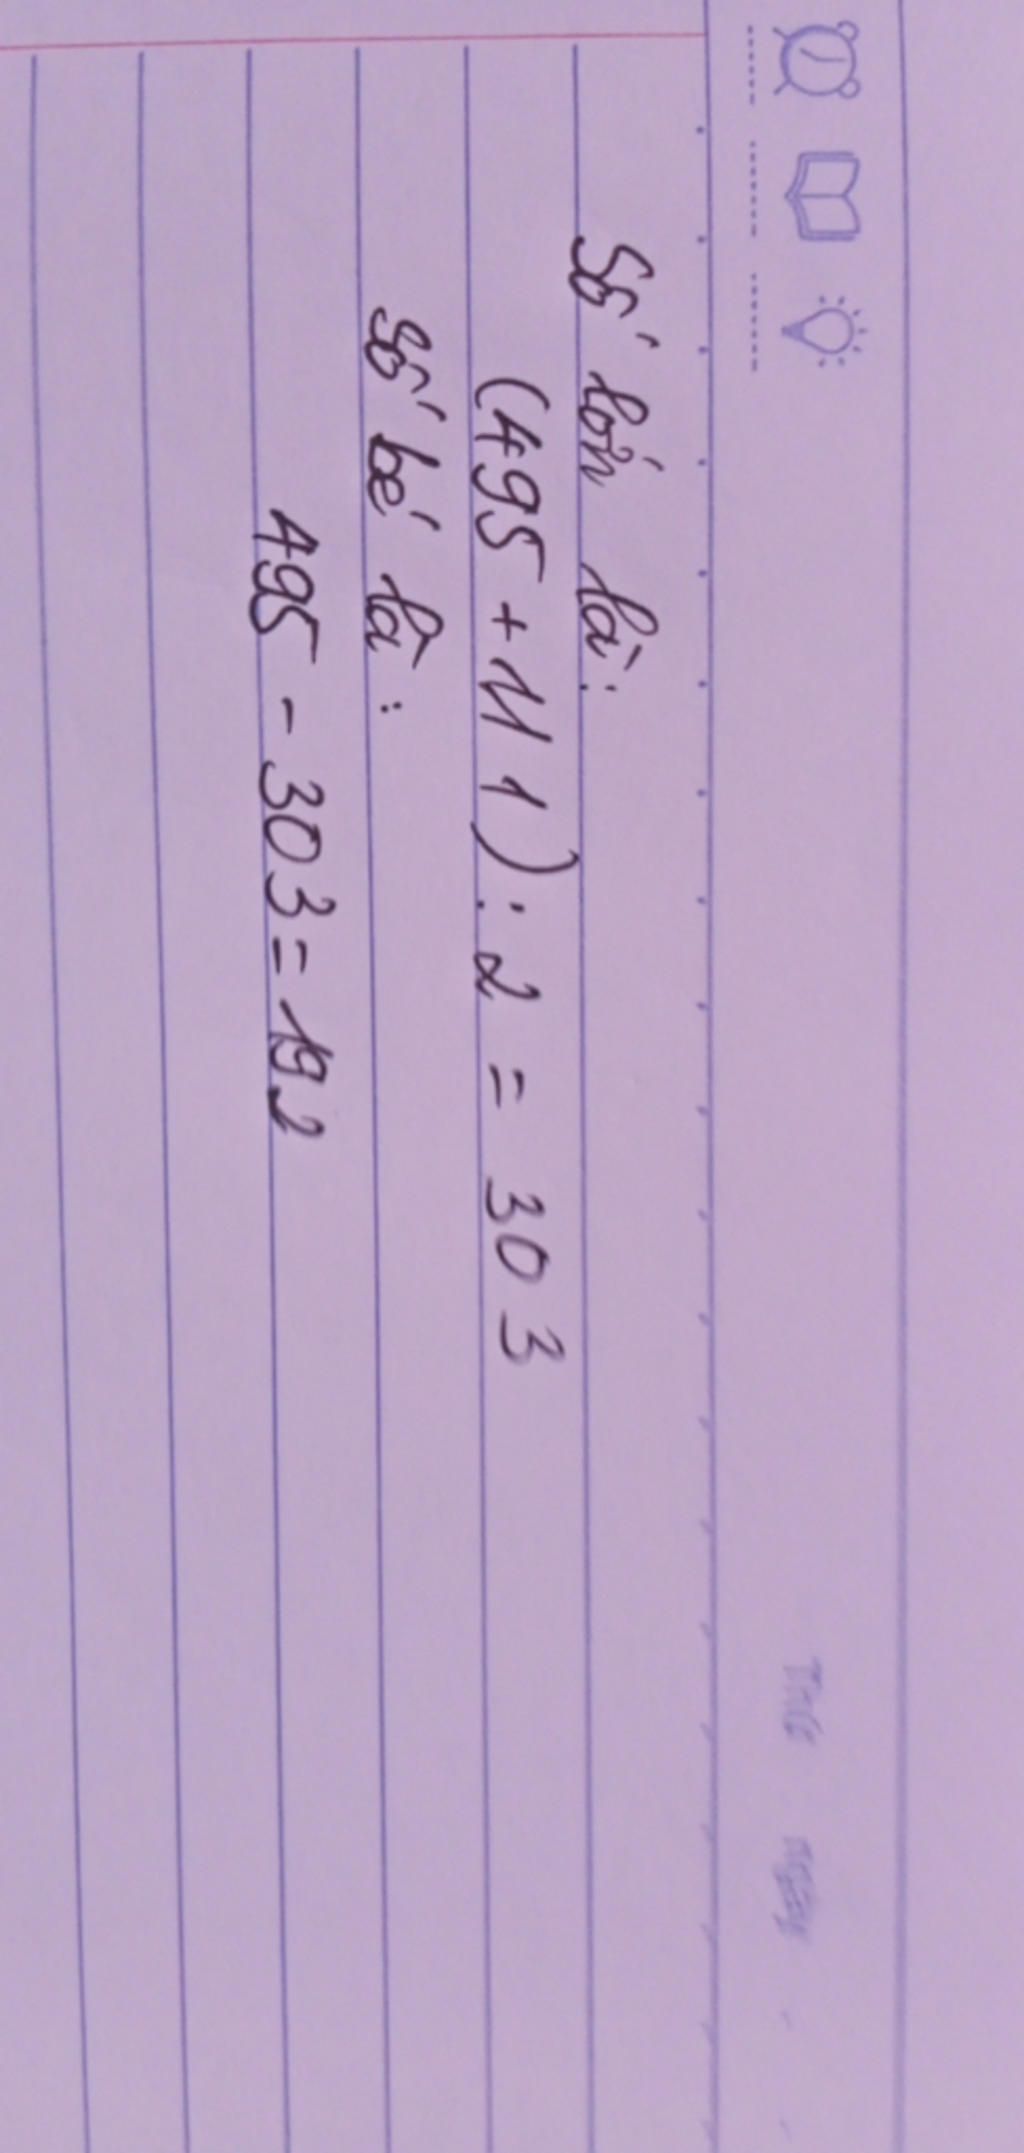 Số lớn là:
(495 + 111) : 2 = 303
Số bé là :
495 - 303 = 192